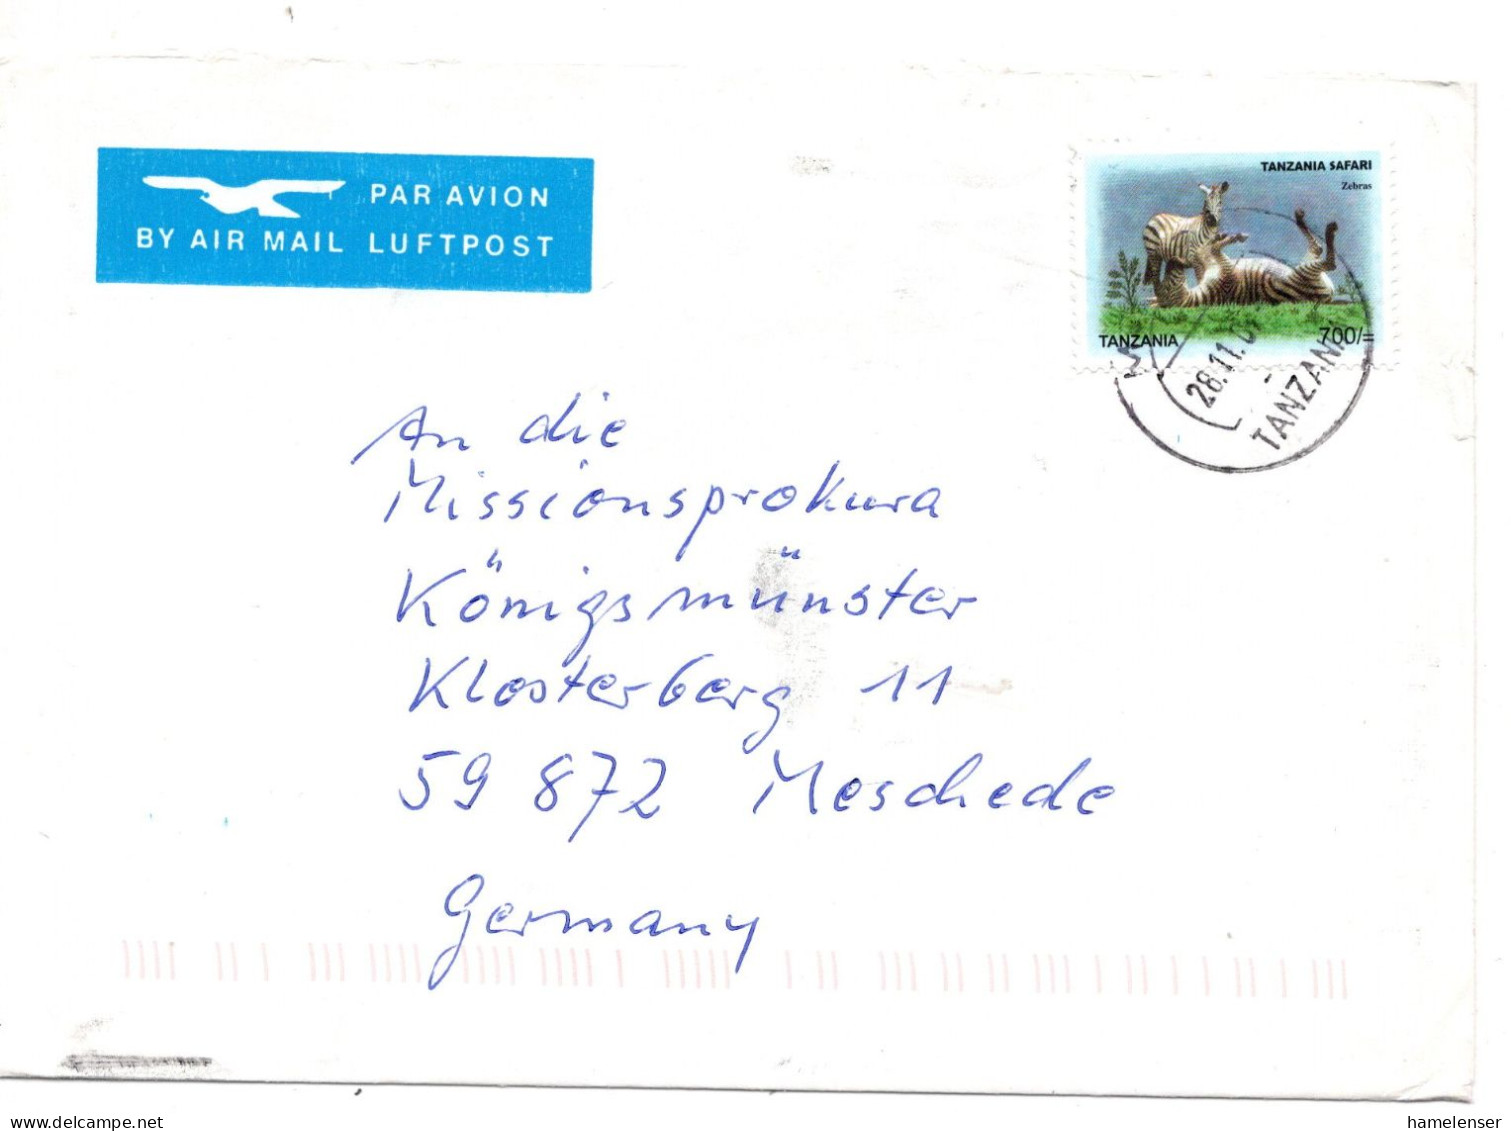 PAR AVION
BY AIR MAIL LUFTPOST
TANZANIA SAFARI
Zebras
TANZANIA
700/=
28.11.0
TANZANIA
An die
Missionsprokura
Königsmünster
Klosterberg 11
59 872 Meschede
Germany
hamelenser
delcampe.net